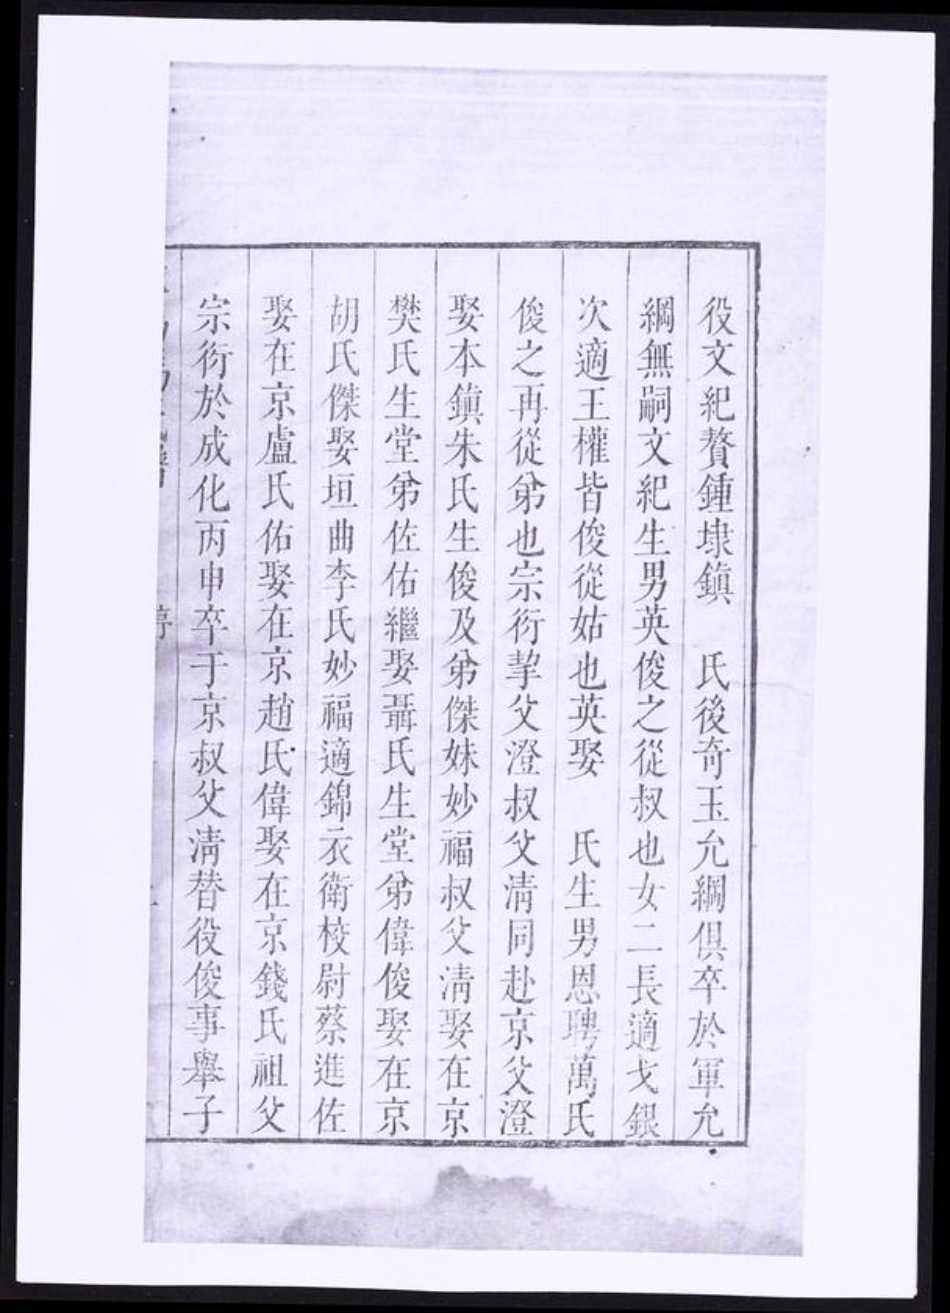 役文紀贅鍾埭鎮　氏後奇玉允綱俱卒於軍允
綱無嗣文紀生男英俊之從叔也女二長適戈銀
次適王權皆俊從姑也英娶　氏生男恩聘萬氏
俊之再從弟也宗衍挈父澄叔父淸同赴京父澄
娶本鎮朱氏生俊及弟傑妹妙福叔父淸娶在京
樊氏生堂弟佐佑繼娶聶氏生堂弟偉俊娶在京
胡氏傑娶垣曲李氏妙福適錦衣衛校尉蔡進佐
娶在京盧氏佑娶在京趙氏偉娶在京錢氏祖父
宗衍於成化丙申卒于京叔父淸替役俊事舉子